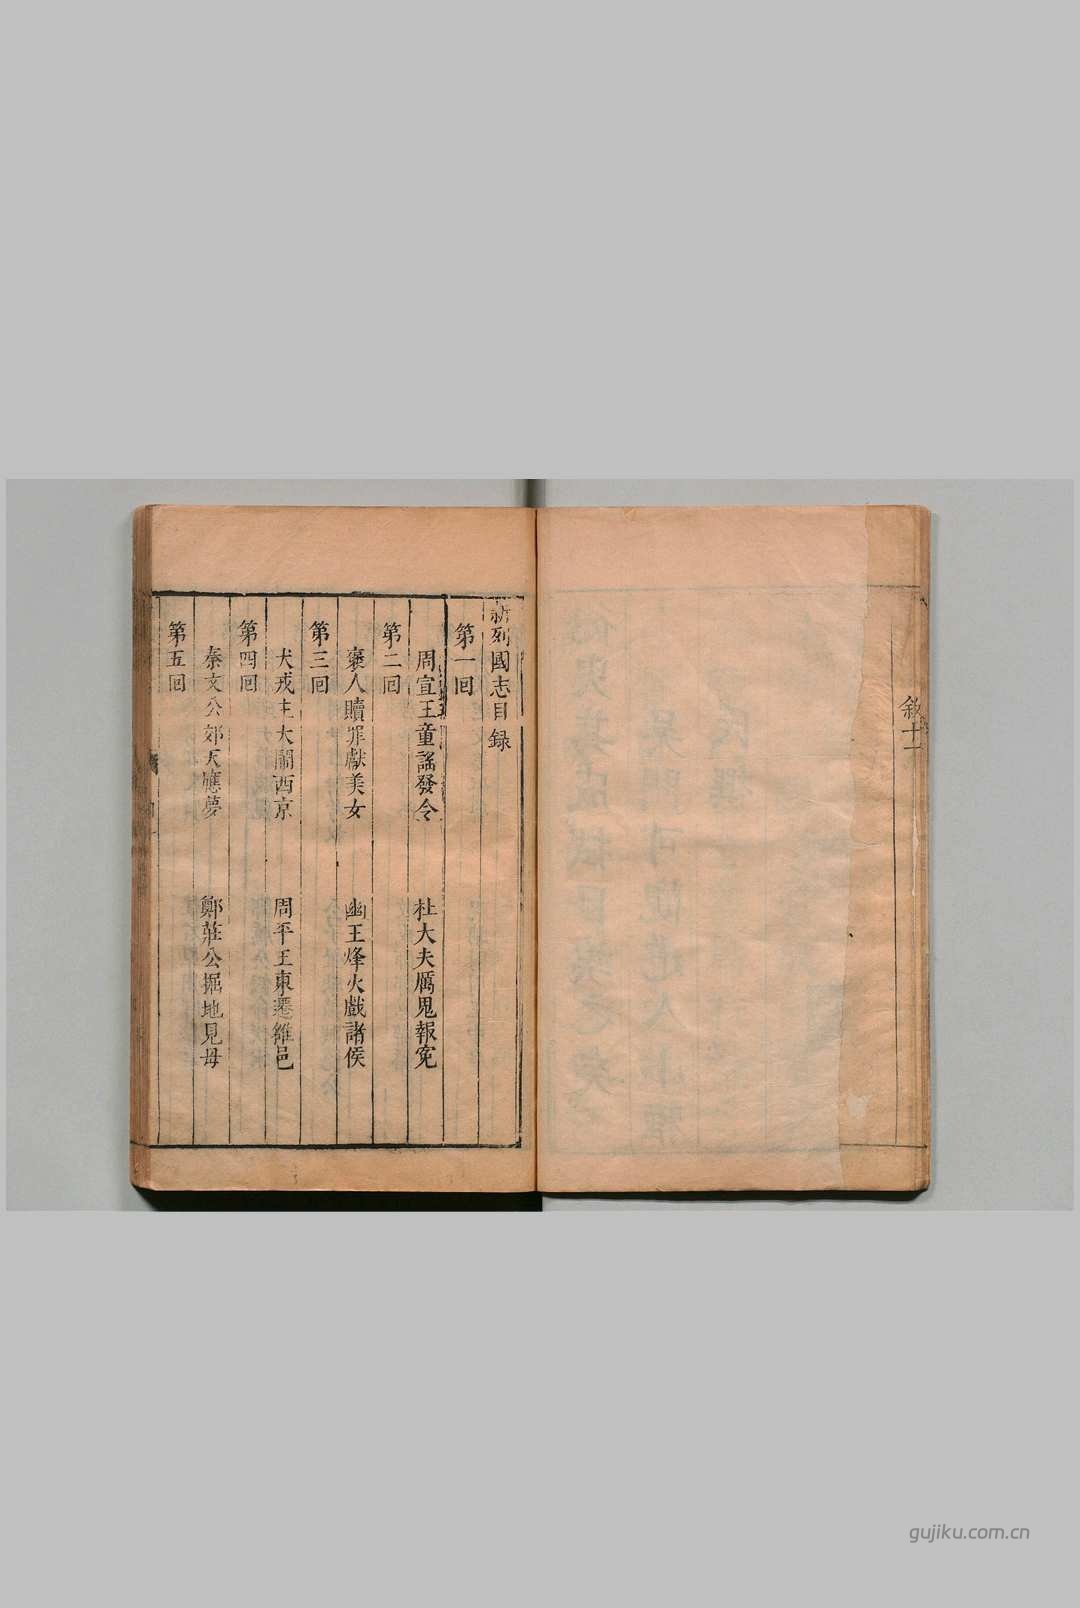 敘十一
新列國志目錄
第一回
周宣王童謠發令　杜大夫厲鬼報冤
第二回
褒人贖罪獻美女　幽王烽火戲諸侯
第三回
犬戎主大鬧西京　周平王東遷雒邑
第四回
秦文公郊天應夢　鄭莊公掘地見母
第五回
gujiku.com.cn